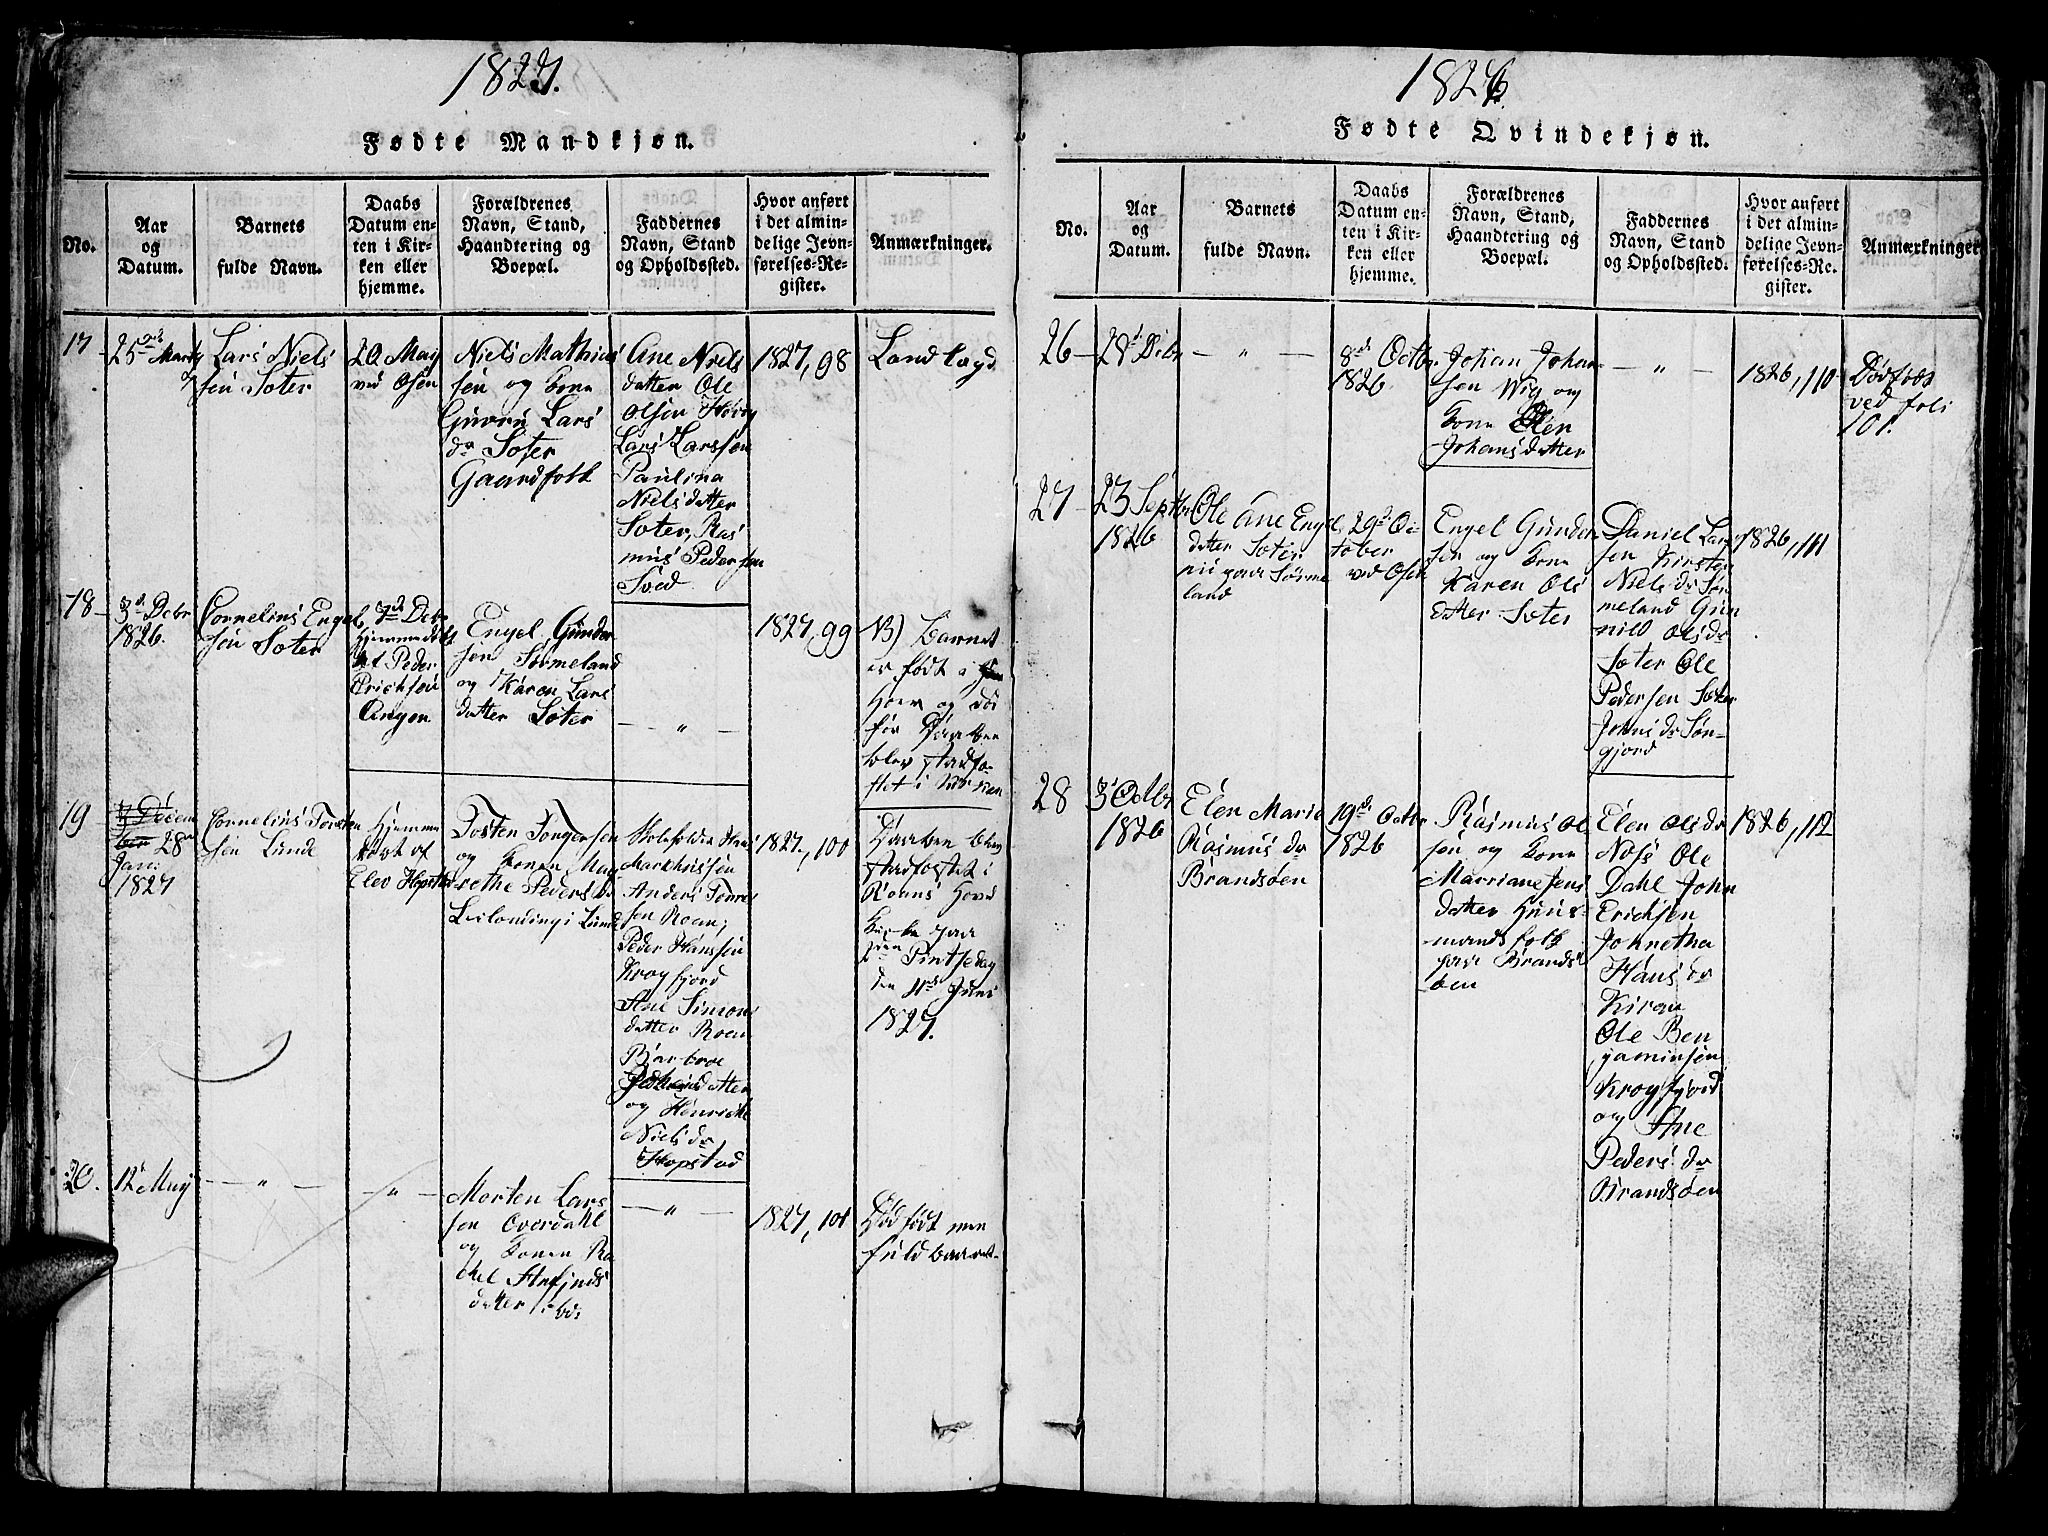 1827.
Fødte Mandkjøn.
No.
Aar
og
Datum.
Barnets
fulde Navn.
Daabs
Datum en-
ten i Kir-
ken eller
hjemme.
Forældrenes
Navn, Stand,
Haandtering og
Boepæl.
Faddernes
Navn, Stand
og Opholdssted.
Hvor anført
i det almin-
delige Jevn-
førelses-Re-
gister.
Anmærkninger.
17
25 Marty
Lars Niels
sen Soter
20 May
ved Osen
Niels Mathies
sen og Kone
Guvru Lars
dr Soter
Gaardfolk
Ane Niels
datter Ole
Olsen Høvig
Lars Larssen
Paulina
Nielsdatter
Soter, Ras
mus Pedersen
Sved
1827, 98
Landlægd
18
3d Debr
1826
Cornelius Engel
sen Soter
7de Debr
hjemmedøbt
af Peder
Erichsen
Angen
Engel Gunder
sen Sørmeland
og Karen Lars
datter Soter
— " —
1827, 99
NB) Barnet
er født i
Hoer og død
før Daaben
blev stadfæ
stet i Kirken
19
3 Decem
ber 28
Jani
1827
Cornelius Torsten
sen Lunde
Hjemme
døbt af
Elev Hopstad
Tosten Torgersen
og Konen Mag
rethe Pedersdr
Leilending i Lunde
Markhussen
Anders Tønne
sen Roen;
Peder Hanssen
Krogfjord
Ane Simons
datter Roen
Barbroe
datter
og Henrikke
Niels dr
Hopstad
1827, 100
Daaben blev
stadfæstet i
Roens Hoved
Kirke paa
Pintsedag
den 4de Juni
1827.
20.
12 May
— " —
— " —
Morten Lars
sen Overdahl
og Konen Ra
chel Steffends
datter ibd:
— " —
1827, 101
Dødfødt men
fuldbaaret
1826
Fødte Qvindekjøn.
No.
Aar
og
Datum.
Barnets
fulde Navn.
Daabs
Datum en-
ten i Kir-
ken eller
hjemme.
Forældrenes
Navn, Stand,
Haandtering og
Boepæl.
Faddernes
Navn, Stand
og Opholdssted.
Hvor anført
i det almin-
delige Jevn-
førelses-Re-
gister.
Anmærkninger
26
— " —
8de Octbr
1826
Johan Johan
sen Wig og
Kone Elen
Johansdatter
— " —
1826, 110
Dødfødt
ved foli
101.
27
23 Septbr
1826
Ole Ane Engels
datter Soter
nu paa Sørme
land
29d Oc
tober
ved Osen
Engel Gunder
sen og Kone
Karen Ols
datter Soter
Daniel Lars
sen Kirsten
Niels dr Sør
meland Gun
nild Ols dr
Soter Ole
Pedersen Soter
Johns dr Søn-
gjord
1826, 111
28
3 Octbr
1826
Elen Marie
Rasmus dr
Brandsøen
19de Octbr
1826
Rasmus Ol
sen og Kone
Marriane Jens
datter Huus-
mandsfolk
paa Brands
øen
Elen Olsdr
Næss Ole
Dahl John
Erichsen
Johnetha
Hans dr
Kiran
Ole Ben
jaminsen
Krogfjord
og Ane
Peders dr
Brandsøen
1826, 112